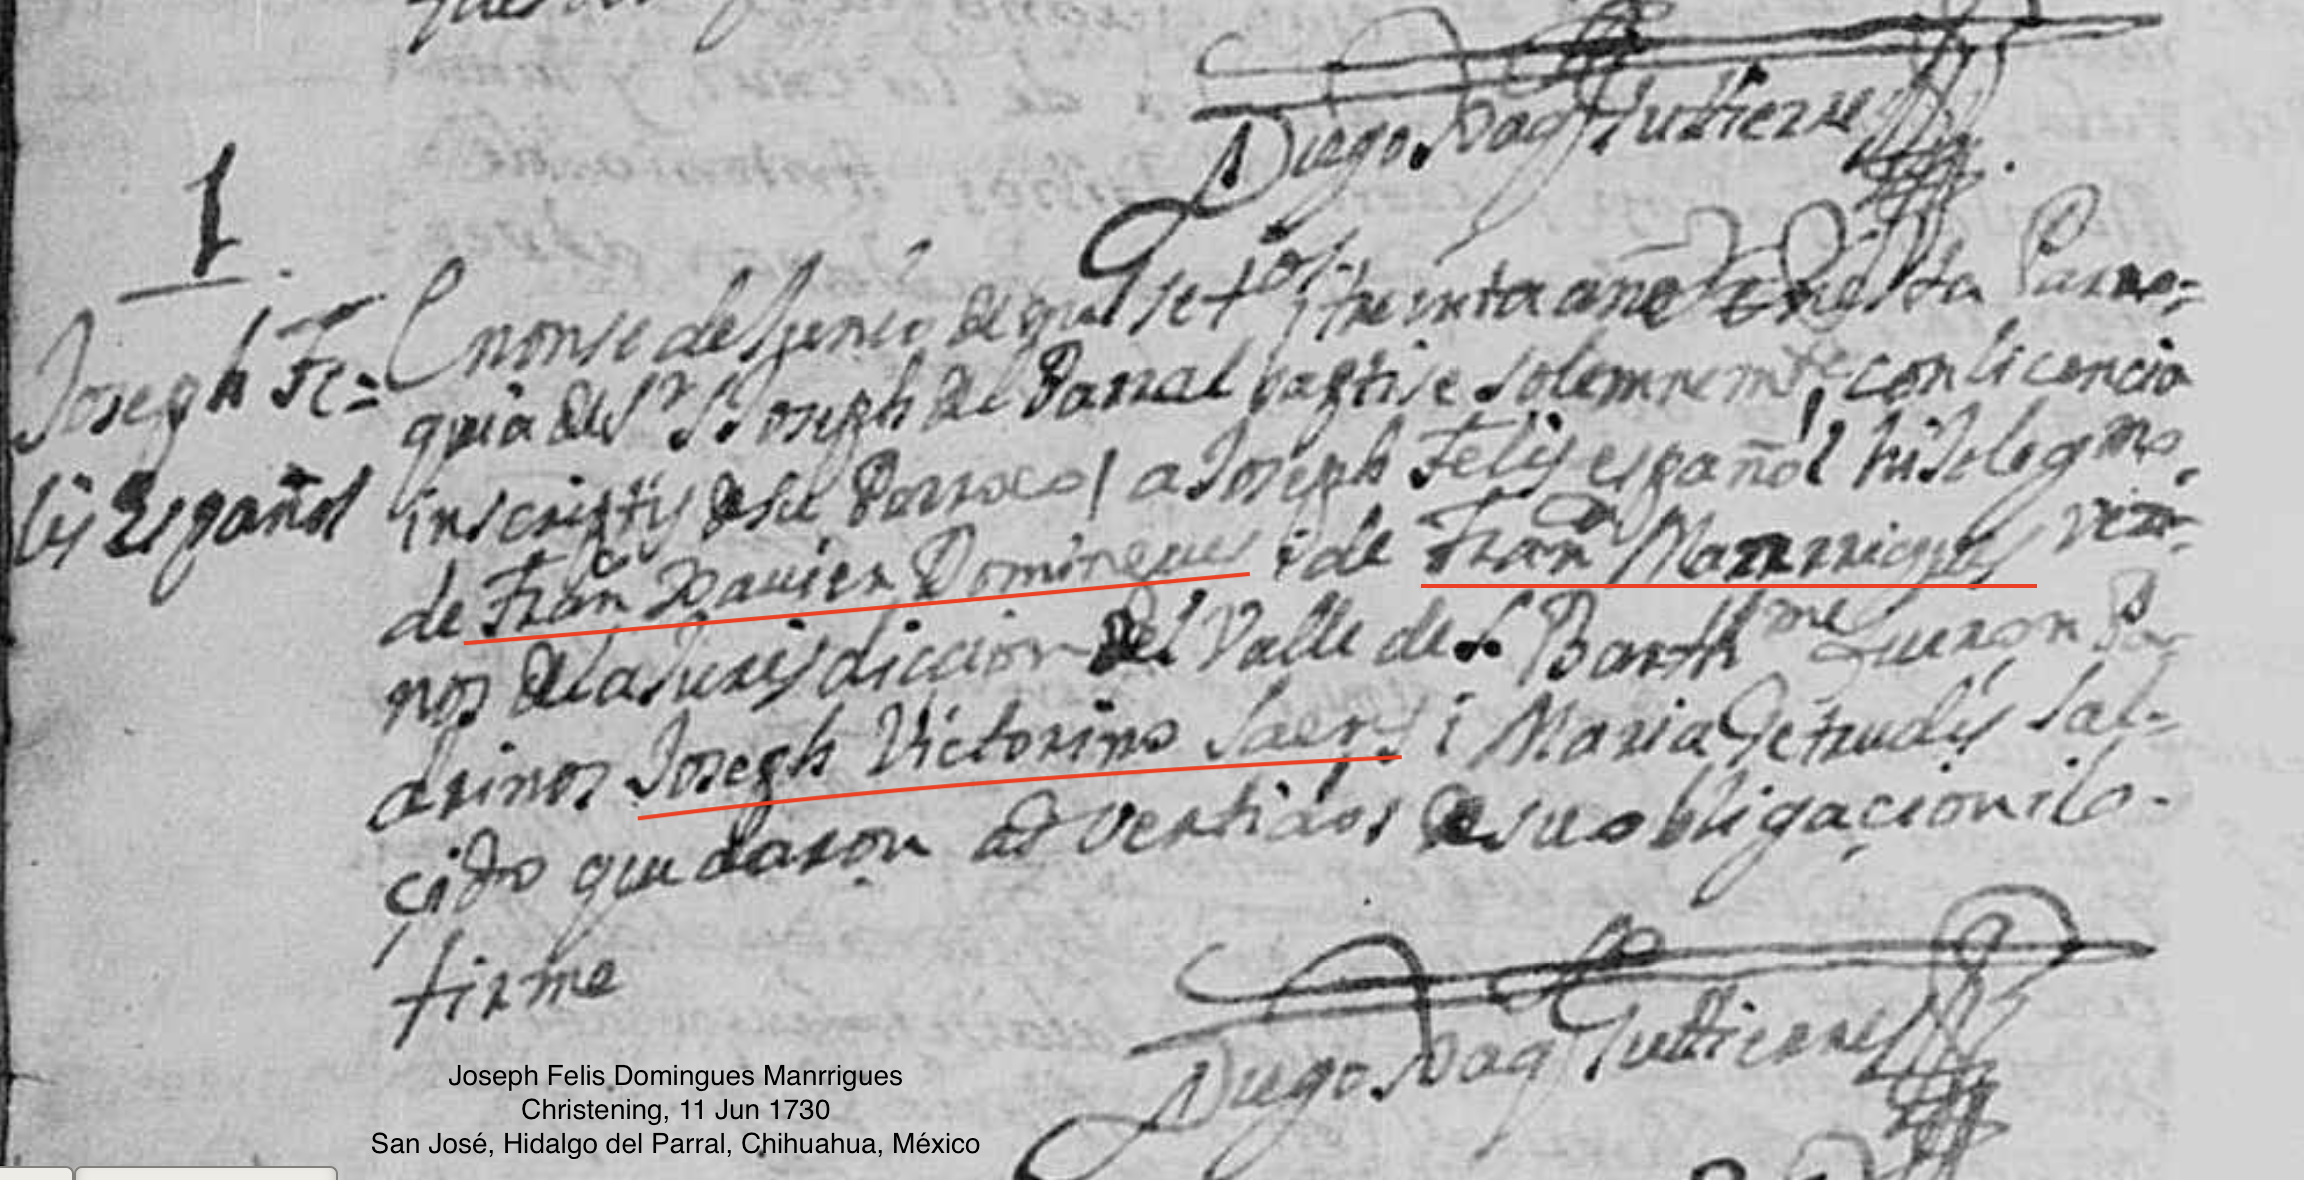 Diego Gutierres
1
Joseph Fe=
lis Español
En onse de Junio de mil set.tos i treinta años en esta Parro=
quia del S.r S. Joseph del Parral baptise solemnem.te con licencia
inscriptis de su Parroco / a Joseph Felis español hijo legmo.
de Fran.co Xavier Domingues i de Fran.ca Manrrigues veci=
nos de la Jurisdiccion del Valle de S. Barth.me fueron Pa
drinos Joseph Victorino Saens i Maria Getrudis Sal=
cido quedaron advertidos de su obligacion i lo-
firme
Diego Gutierres
Joseph Felis Domingues Manrrigues
Christening, 11 Jun 1730
San José, Hidalgo del Parral, Chihuahua, México